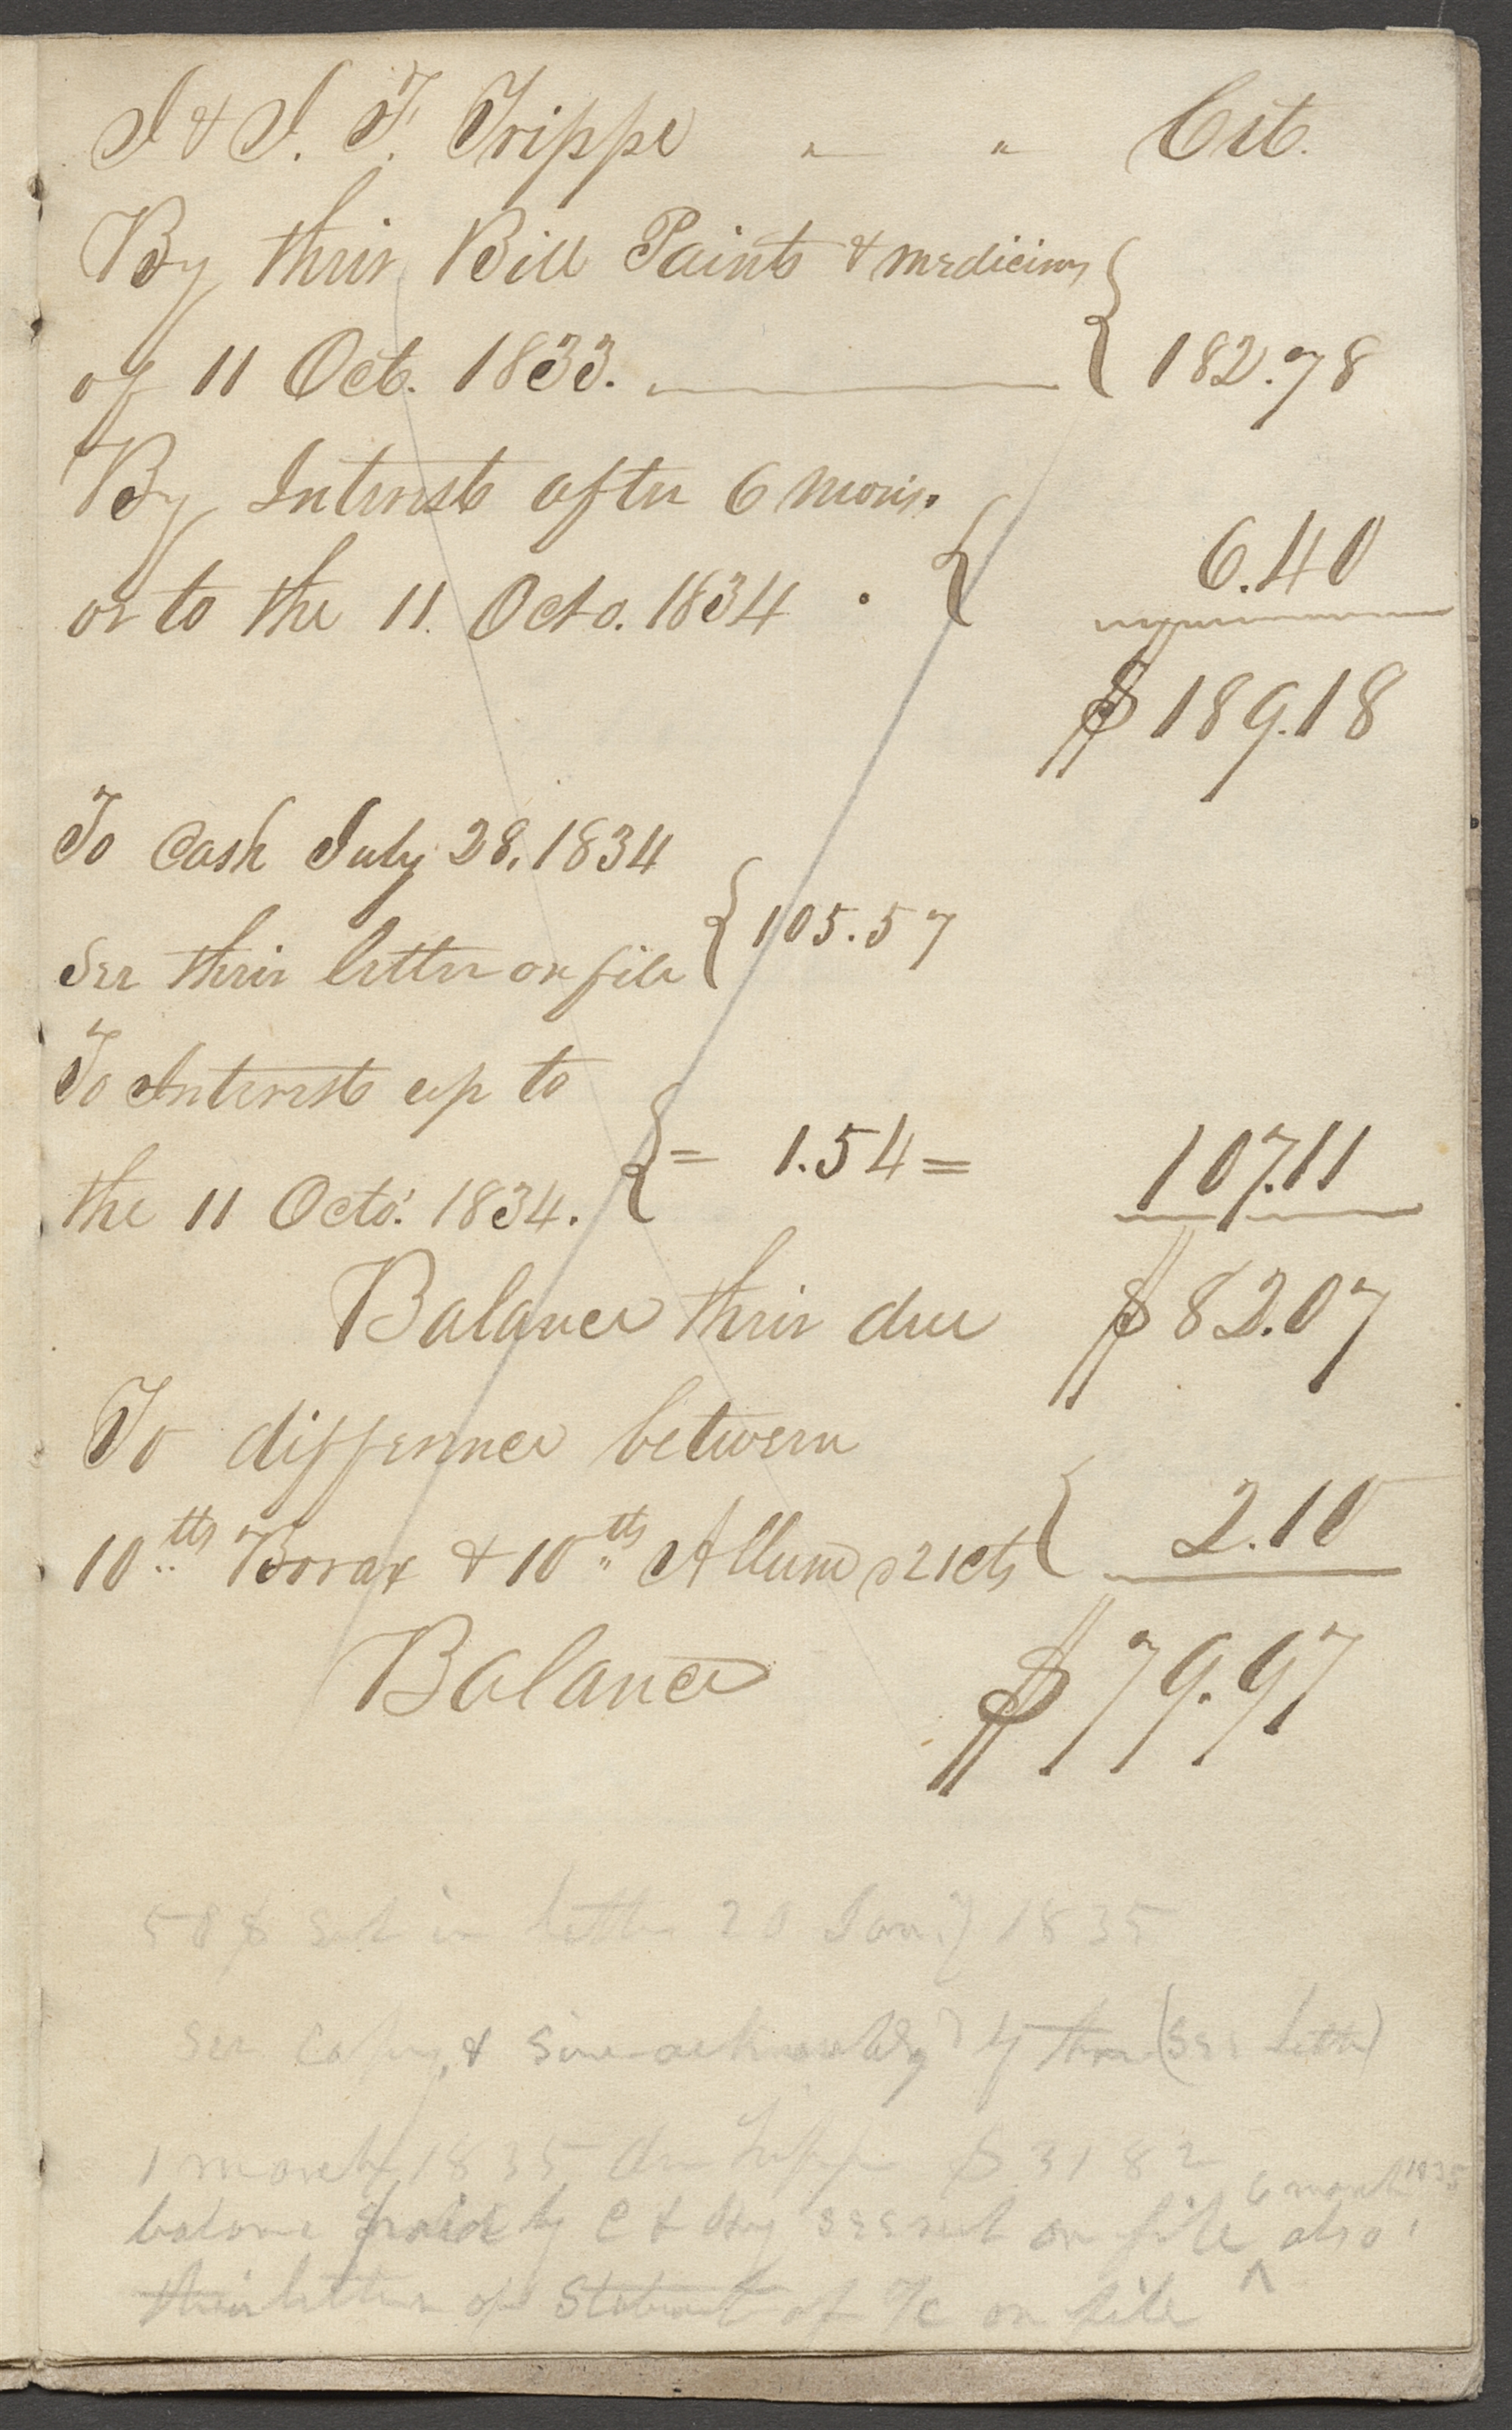 J & J. F. Trippe " " Crt.
By their Bill Paints & medicines
of 11 Oct. 1833. 182.78
By Interest after 6 mons.
or to the 11. Octo. 1834 . 6.40
$189.18
To Cash July 28, 1834
See their letter on file 105.57
To Interest up to
the 11 Octo. 1834. = 1.54 = 107.11
Balance their due $82.07
To difference between
10 lbs Borax & 10 lbs Allum @ 21 cts 2.10
Balance $79.97
58$ sent in letter 20 Jany 1835
See copy & since acknowledgd by them (See letter)
1 March 1835 due Trippe $31 82
balance paid by C & Hy see rect on file 6 march 1835 also
their letter of Statement of a/c on file